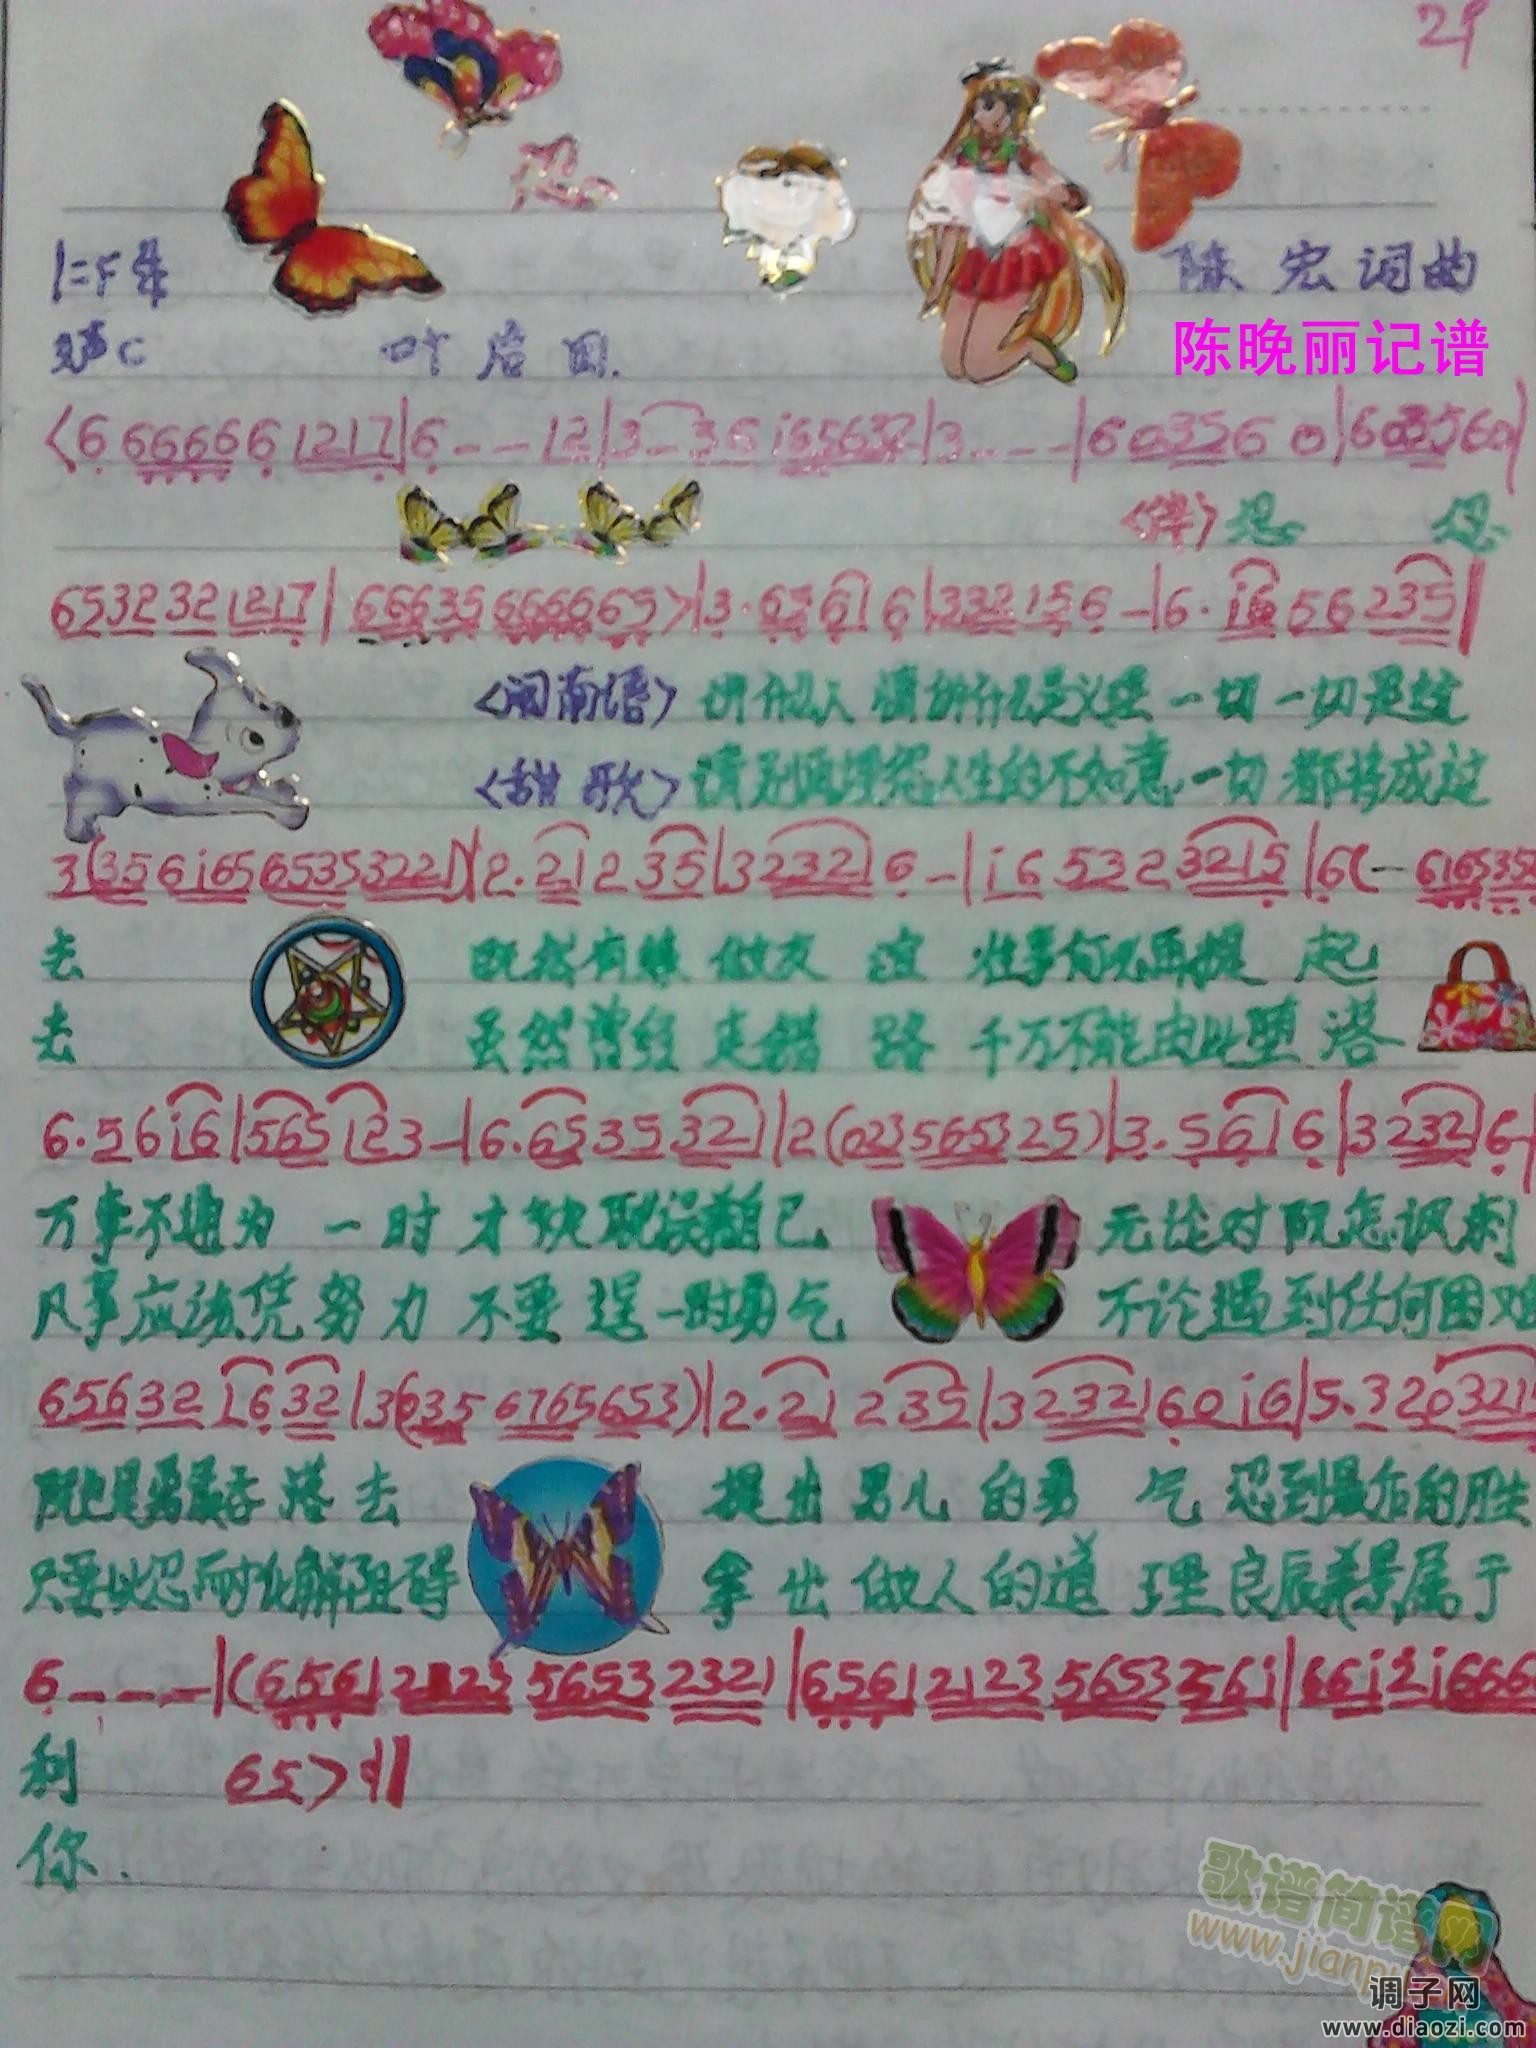 29
忍
1=F 4/4
陈宏词曲
叶启田.
陈晚丽记谱
<6 6666 6 1217|6--12|3-36 i65637|3---|603560|603560|
<伴>忍 忍
6532 32 1217|66635 6666 65>|3·6561 6|332156-|6·i6 56 235|
<闽南语> 讲什么人情讲什么是义理 一切一切是
<甜歌> 请别再埋怨人生的不如意 一切都将成过
3(356i65 6535322)|2·21 2 35|3 2321 6-|i6 532 3215|6(-616535
去 既然有 做友 谊 往事何必再提起
去 虽然曾经走错路 千万不能由此堕落
6·56i6|565123-|6·6535321|2(023565325)|3·5616|323216-
万事不通为一时 才 耽误着自己 无论对阮怎讽刺
凡事应该凭努力 不要逞一时勇气 不论遇到任何困难
6563216 32|3(035 6765653)|2·21 235|3 2321 60i6|5·320321
阮也是勇敢吞落去 提出男儿的勇气 忍到最后的胜
只要以忍耐化解阻碍 拿出做人的道理 良辰美景属于
6---|(6561 2123 5653 2321|6561 2123 5653 256i|66i2i666
利 65>:‖
你.
歌谱简谱网
www.jianpu
调子网
www.diaozi.com